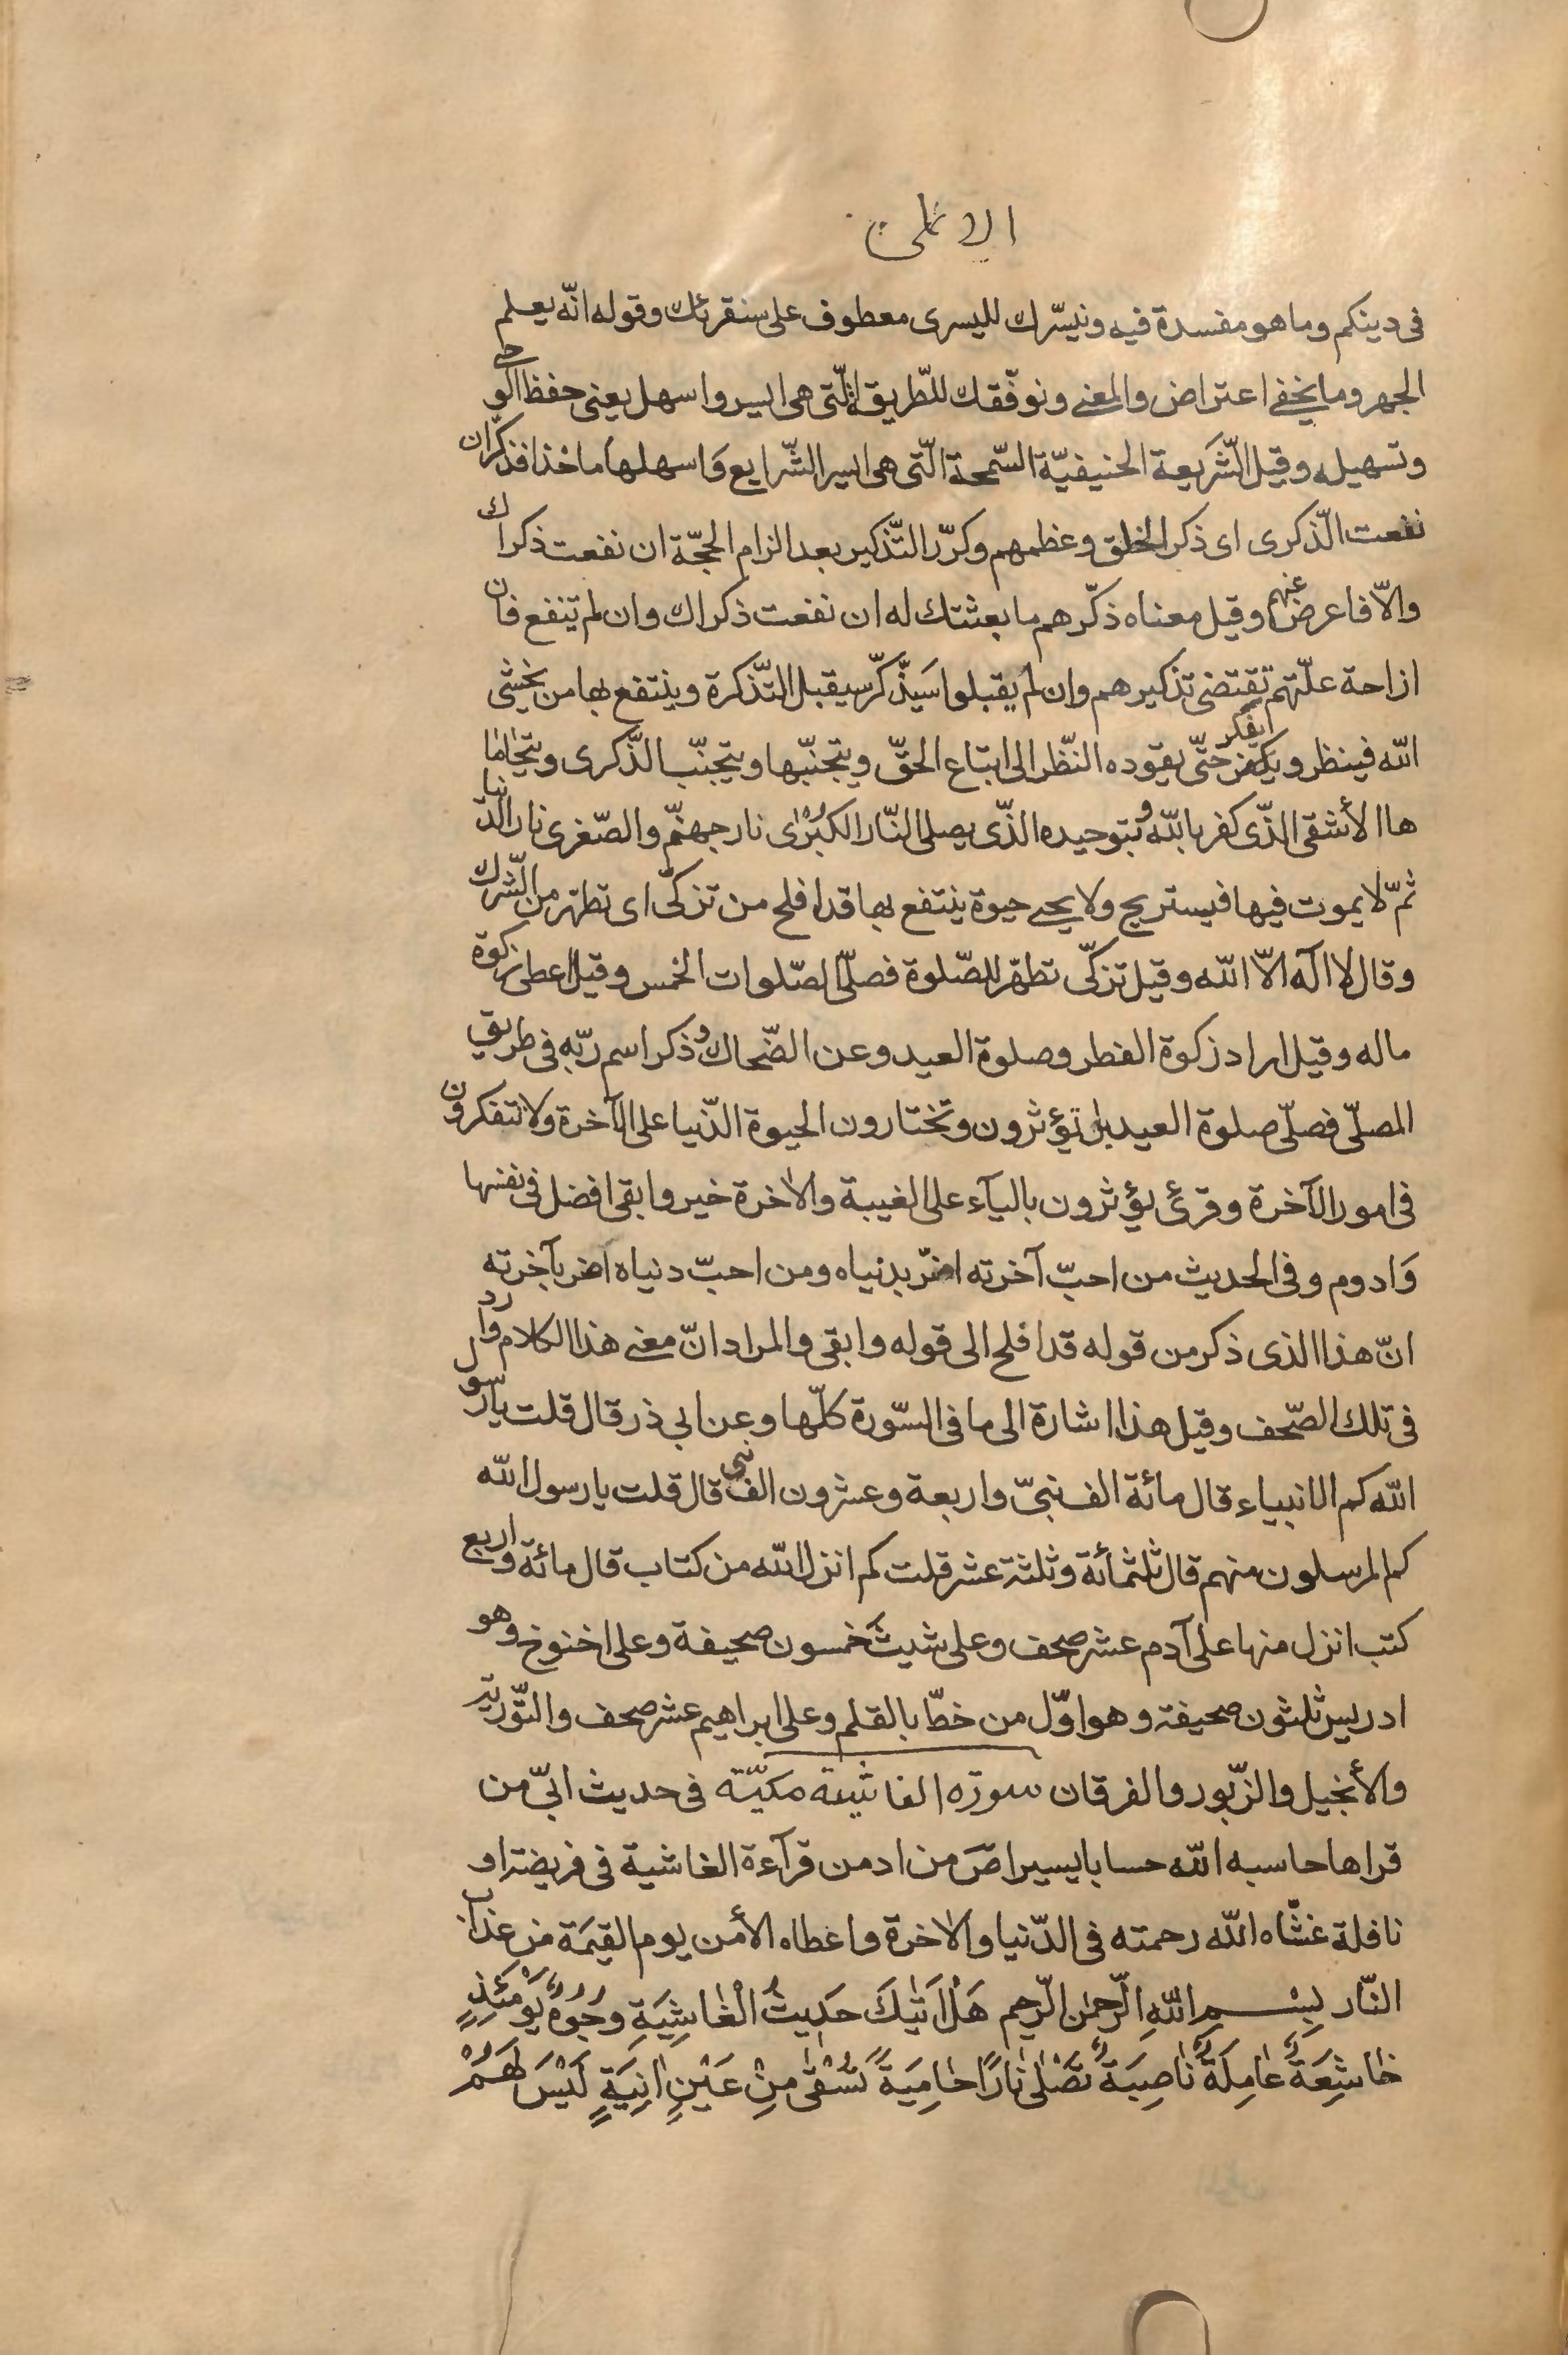 الاعلى
فى دينكم وما هو مفسدة فيه ونيسّرك لليسرى معطوف على سنقرئك وقوله انّه يعلم
الجهر وما يخفى اعتراض والمعنى ونوفّقك للطّريقة الّتى هى ايسر واسهل يعنى حفظ الوحى
وتسهيله وقيل الشّريعة الحنيفيّة السّمحة الّتى هى ايسر الشّرايع وَاسهلها ماخذا فذكّر ان
نفعت الذّكرى اى ذكر الخلق وعظهم وكرّر التّذكير بعد الزام الحجّة ان نفعت ذكراك
والّا فاعرض عنهم وقيل معناه ذكّرهم ما بعثتك له ان نفعت ذكراك وان لم تنفع فان
ازاحة علّتهم تقتضى تذكيرهم وان لم يقبلوا سَيذّكّر سيقبل التّذكرة وينتفع بها من يخشى
الله فينظر ويتفكر حتّى يقوده النّظر الى ابتاع الحقّ ويتجنّبها ويتجنّب الذّكرى ويتحاما
ها الأشقى الذّى كفر بالله وبتوحيده الذّى يصلى النّار الكبْرٰى نار جهنّم والصّغرى نار الدّنيا
ثمّ لا يموت فيها فيستريح ولا يحيى حيوة ينتفع بها قد افلح من تزكّى اى تطهّر من الشّرك
وقال لا اله الّا الله وقيل تزكّى تطهّر للصّلوة فصلّى الصّلوات الخمس وقيل اعطى زكوة
ماله وقيل اراد زكوة الفطر وصلوة العيد وعن الضّحاك وذكر اسم ربّه فى طريق
المصلّى فصلّى صلوة العيد بل تؤثرون وتختارون الحيوة الدّنيا على الآخرة ولا تتفكرون
فى امور الآخرة وقرئ يؤثرون باليآء على الغيبة والاخرة خير وابقى افضل فى نفسها
وَادوم وفى الحديث من احبّ آخرته اضرّ بدنياه ومن احبّ دنياه اضر بآخرته
انّ هذا الذى ذكر من قوله قد افلح الى قوله وابقى والمراد انّ معنى هذا الكلام وارد
فى تلك الصّحف وقيل هذا اشارة الى ما فى السّورة كلّها وعن ابى ذر قال قلت يا رسول
الله كم الانبياء قال مائة الف نبىّ واربعة وعشرون الف نبى قال قلت يا رسول الله
كم المرسلون منهم قال ثلثمائة وثلثة عشر قلت كم انزل الله من كتاب قال مائة واربع
كتب انزل منها على آدم عشر صحف وعلى شيث خمسون صحيفة وعلى اخنوخ وهو
ادريس ثلثون صحيفة وهو اوّل من خطّ بالقلم وعلى ابراهيم عشر صحف والتّورية
والأنجيل والزّبور والفرقان سورة الغاشية مكيّة فى حديث ابىّ من
قراها حاسبه الله حسابا يسيرا صَ من ادمن قرآءة الغاشية فى فريضة او
نافلة غشّاه الله رحمته فى الدّنيا والاخرة واعطاه الأمن يوم القيٰمة من عذاب
النّار بِسْمِ اللهِ الرّحمٰن الرّحيم هَلْ اَتٰيكَ حَدِيثُ الْغٰاشِيَةِ وُجُوهٌ يَوْمَئِذٍ
خٰاشِعَةٌ عٰامِلَةٌ نٰاصِبَةٌ تَصْلٰى نٰارًا حٰامِيَةً تُسْقٰى مِنْ عَيْنٍ اٰنِيَةٍ لَيْسَ لَهُمْ